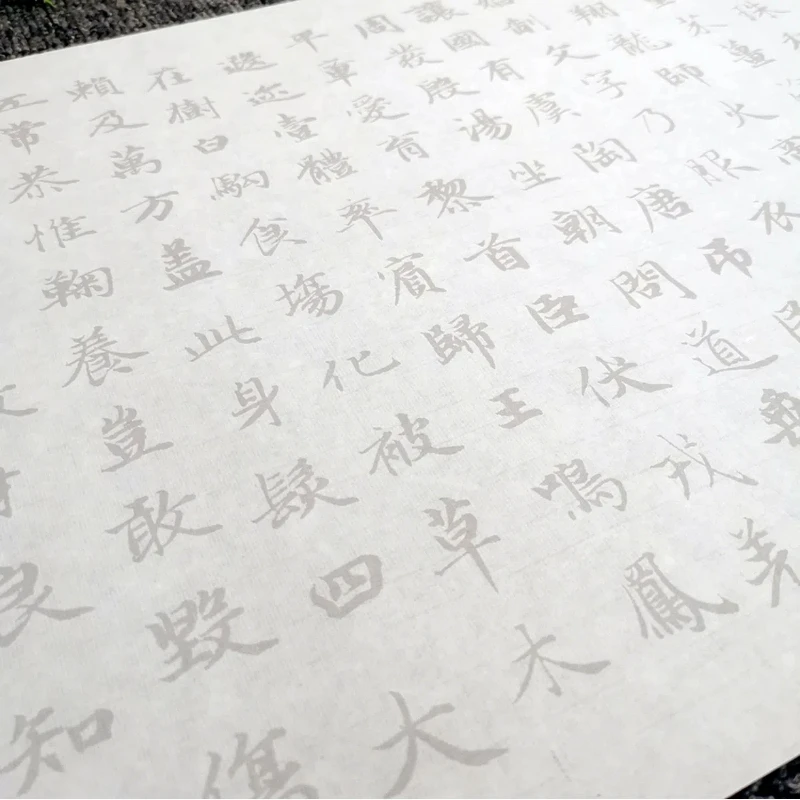 珠
芥薑
翔龍師火
制文字乃服衣
讓國有虞陶唐弔
周發殷湯坐朝問道
平章愛育黎首臣伏戎羌
遐邇壹體率賓歸王鳴鳳
在樹白駒食場化被草木
賴及萬方蓋此身髮四大
五常恭惟鞠養豈敢毀傷
才良知